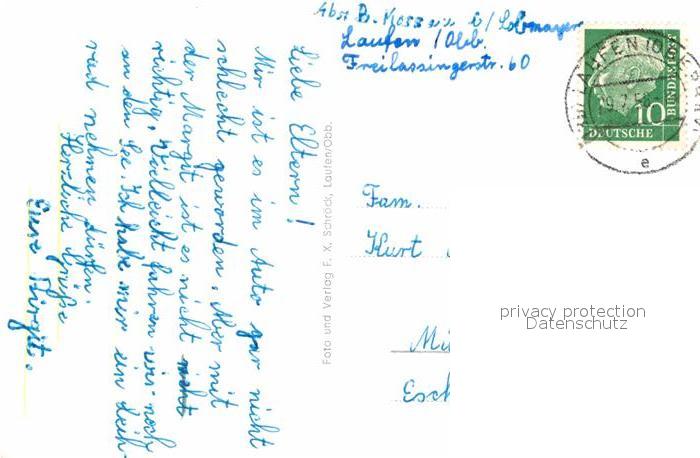 Liebe Eltern!
Mir ist es im Auto gar nicht
schlecht geworden. Aber mit
der Margit ist es nicht
richtig. Vielleicht fahren wir noch
an den See. Ich habe mir ein Leih-
rad nehmen dürfen.
Herzliche Grüße
Eure Birgit.
Foto und Verlag F. X. Schröck, Laufen/Obb.
Abs. B. b/ Lobmayer
Laufen/Obb.
Freilassingerstr. 60
LAUFEN
10
DEUTSCHE
BUNDESPOST
e
Fam.
Kurt
Mi
Esch
privacy protection
Datenschutz